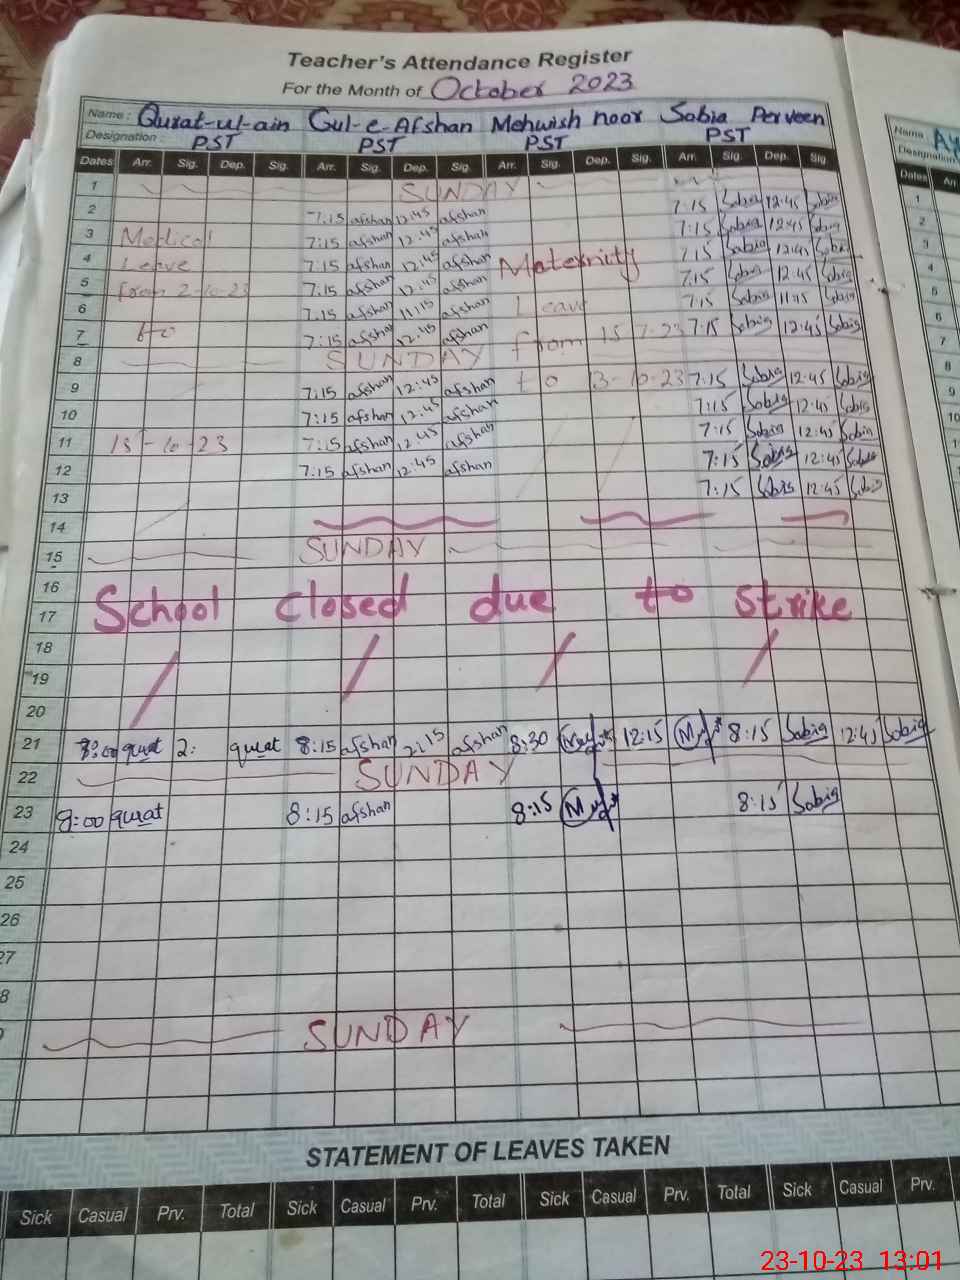 Teacher's Attendance Register
For the Month of October 2023
Name : Qurat-ul-ain Gul-e-Afshan Mehwish noor Sabia Perveen
Designation : PST PST PST PST
Dates Arr. Sig. Dep. Sig. Arr. Sig. Dep. Sig. Arr. Sig. Dep. Sig. Arr. Sig. Dep. Sig
1 SUNDAY
2 7:15 afshan 12:45 afshan 7:15 Sabia 12:45 Sabia
3 Medical 7:15 afshan 12:45 afshan 7:15 Sabia 12:45 Sabia
4 Leave 7:15 afshan 12:45 afshan Maternity 7:15 Sabia 12:45 Sabia
5 from 2-10-23 7:15 afshan 12:45 afshan 7:15 Sabia 12:45 Sabia
6 7:15 afshan 11:15 afshan Leave 7:15 Sabia 11:45 Sabia
7 to 7:15 afshan 12:45 afshan from 15 7-23 7:15 Sabia 12:45 Sabia
8 SUNDAY
9 7:15 afshan 12:45 afshan to 13-10-23 7:15 Sabia 12:45 Sabia
10 7:15 afshan 12:45 afshan 7:15 Sabia 12:45 Sabia
11 15-10-23 7:15 afshan 12:45 afshan 7:15 Sabia 12:45 Sabia
12 7:15 afshan 12:45 afshan 7:15 Sabia 12:45 Sabia
13 7:15 Sabia 12:45 Sabia
14
15 SUNDAY
16
School closed due to strike
17
18
19
20
21 8:00 qurat 2: qurat 8:15 afshan 2:15 afshan 8:30 12:15 8:15 Sabia 12:45 Sabia
22 SUNDAY
23 8:00 qurat 8:15 afshan 8:15 8:15 Sabia
24
25
26
27
8
SUNDAY
STATEMENT OF LEAVES TAKEN
Sick Casual Prv. Total Sick Casual Prv. Total Sick Casual Prv. Total Sick Casual Prv.
Name : Ay
Designation
Dates Arr
1
2
3
4
5
6
7
8
9
10
11
12
13
14
15
16
17
23-10-23 13:01